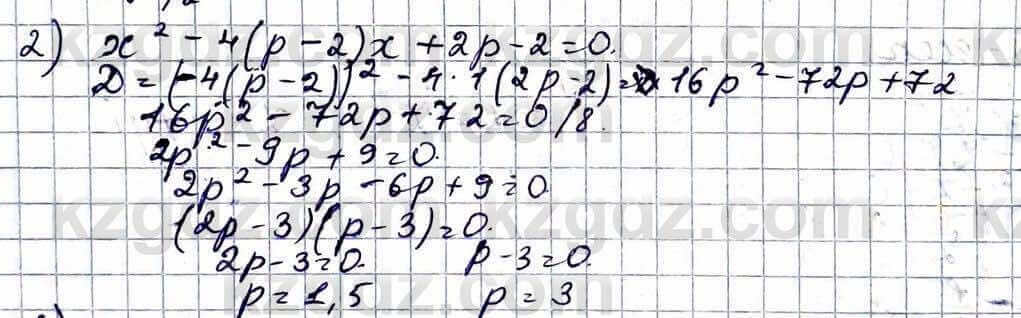 2) x² - 4(p - 2)x + 2p - 2 = 0.
D = (-4(p - 2))² - 4 · 1 (2p - 2) = 16p² - 72p + 72
16p² - 72p + 72 = 0 /8.
2p² - 9p + 9 = 0.
2p² - 3p - 6p + 9 = 0
(2p - 3)(p - 3) = 0.
2p - 3 = 0. p - 3 = 0.
p = 1,5 p = 3